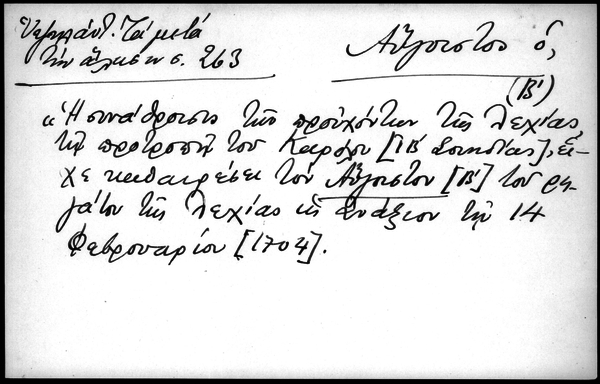 Ὑψηλάντ. Τὰ μετὰ
τὴν ἅλωσιν σ. 263
Αὔγουστος ὁ,
(Β′)
«Ἡ συνάθροισις τῶν προὐχόντων τῆς Λεχίας,
τῇ προτροπῇ τοῦ Καρόλου [ΙΒ′ Σουηδίας], εἶ-
χε καθαιρέσει τὸν Αὔγουστον [Β′] τοῦ ρη-
γάτου τῆς Λεχίας ὡς ἀνάξιον τῇ 14
Φεβρουαρίου [1704].